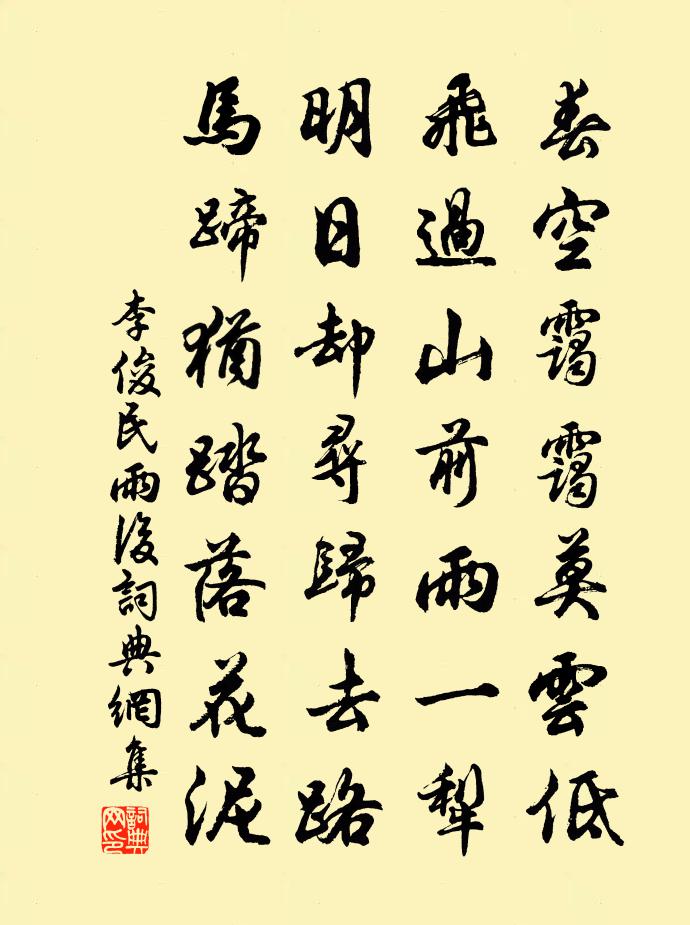 春空靄靄莫雲低
飛過山前雨一犁
明日却尋歸去路
馬蹄猶踏落花泥
李俊民雨後詞典網集
詞典網印